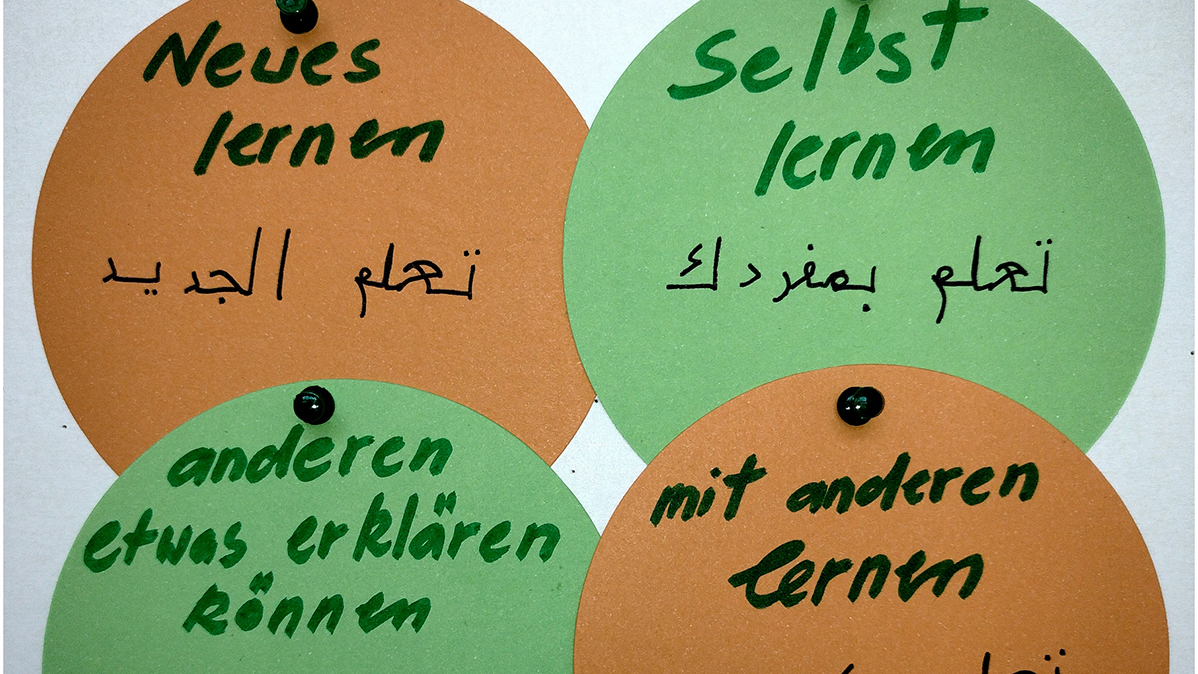 Neues
lernen
تعلم الجديد
Selbst
lernen
تعلم بمفردك
anderen
etwas erklären
können
mit anderen
lernen